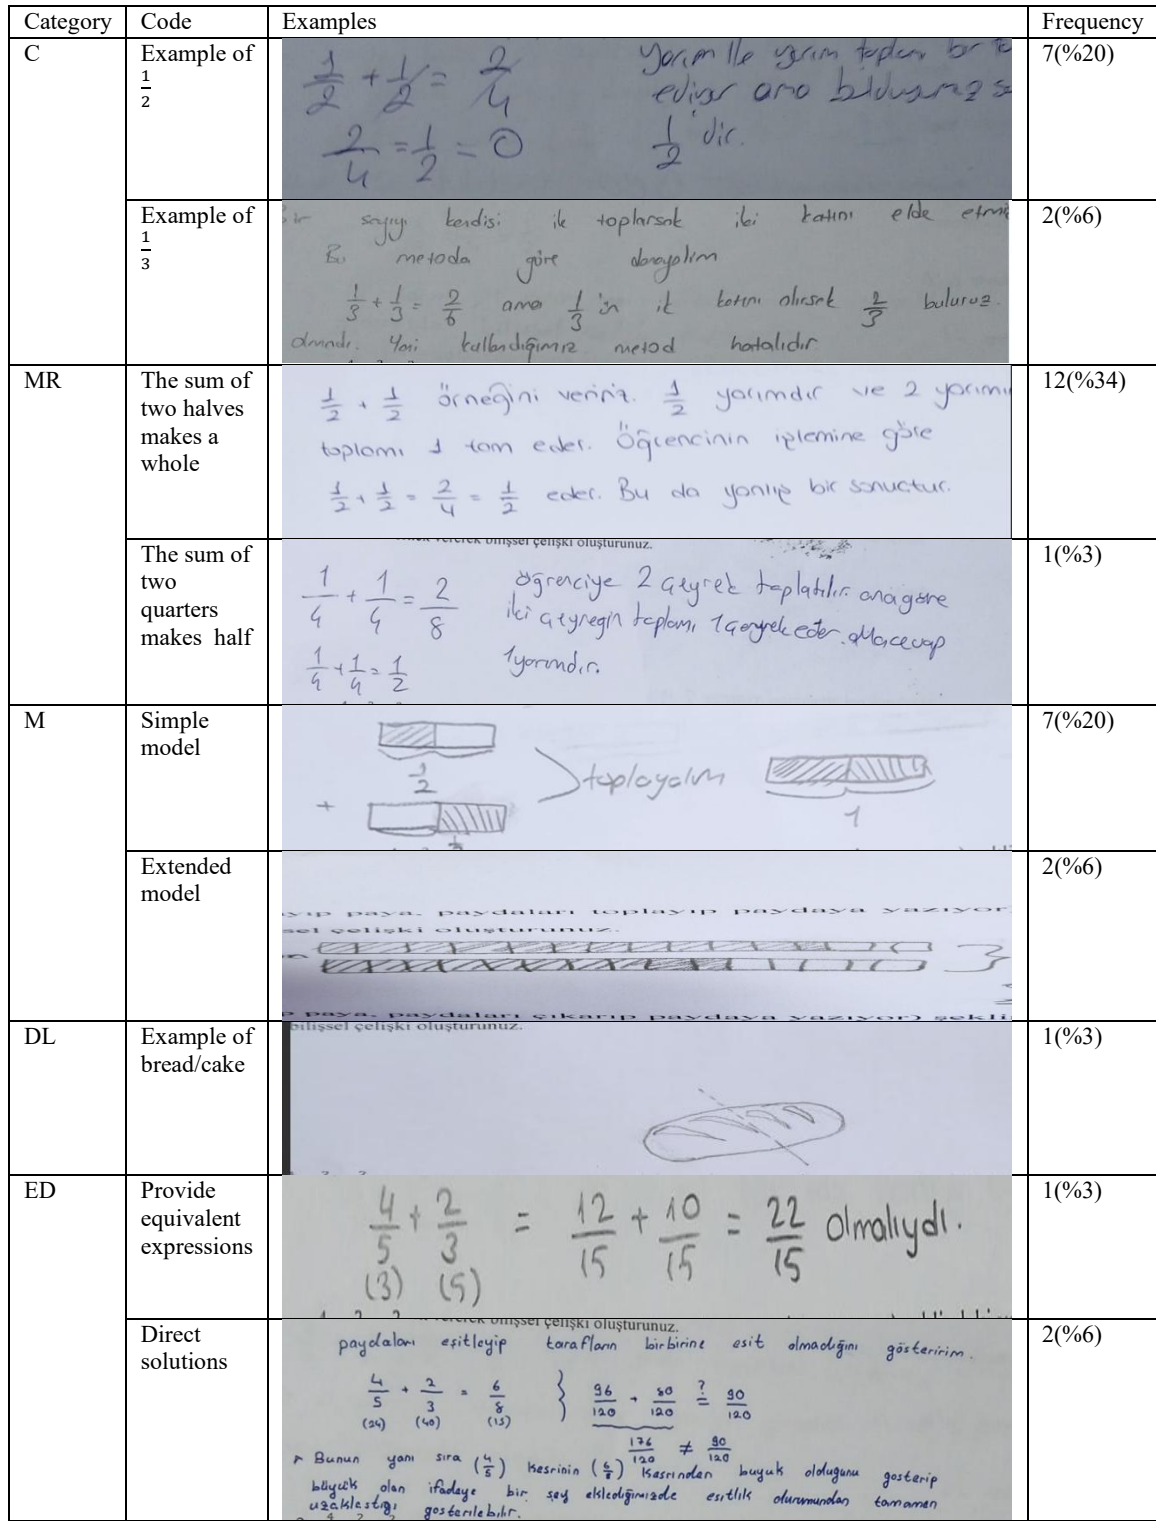 Category Code Examples Frequency
C Example of 1/2 7(%20)
1/2 + 1/2 = 2/4
2/4 = 1/2 = 0
Yarım ile yarım toplam bir
ediyor ama
1/2 'dir.
Example of 1/3 2(%6)
sayıyı kendisi ile toplarsak iki katını elde
Bu metoda göre deneyelim
1/3 + 1/3 = 2/6 ama 1/3 'ün katını alırsak 2/3 buluruz.
Yani kullandığımız metod hatalıdır
MR The sum of two halves makes a whole 12(%34)
1/2 + 1/2 örneğini veririz. 1/2 yarımdır ve 2 yarımın
toplamı 1 tam eder. Öğrencinin işlemine göre
1/2 + 1/2 = 2/4 = 1/2 eder. Bu da yanlış bir sonuçtur.
The sum of two quarters makes half 1(%3)
bilişsel çelişki oluşturunuz.
1/4 + 1/4 = 2/8
1/4 + 1/4 = 1/2
Öğrenciye 2 çeyrek toplatılır ona göre
iki çeyreğin toplamı 1 çeyrek eder. cevap
1 yarımdır.
M Simple model 7(%20)
1/2
+
toplayalım
1
Extended model 2(%6)
paya, paydaları toplayıp paydaya yazıyor
çelişki oluşturunuz.
paya, paydaları çıkarıp paydaya yazıyor) şekli
DL Example of bread/cake 1(%3)
bilişsel çelişki oluşturunuz.
ED Provide equivalent expressions 1(%3)
4/5 + 2/3 = 12/15 + 10/15 = 22/15 olmalıydı.
(3) (5)
Direct solutions 2(%6)
bilişsel çelişki oluşturunuz.
paydaları eşitleyip tarafların birbirine esit olmadığını gösteririm.
4/5 + 2/3 = 6/8 } 96/120 + 80/120 ?= 90/120
(24) (40) (15)
176/120 ≠ 90/120
Bunun yanı sıra (4/5) kesrinin (6/8) kesrinden buyuk olduğunu gosterip
büyük olan ifadeye bir şey eklediğimizde esitlik durumundan tamamen
uzaklastığı gosterilebilir.